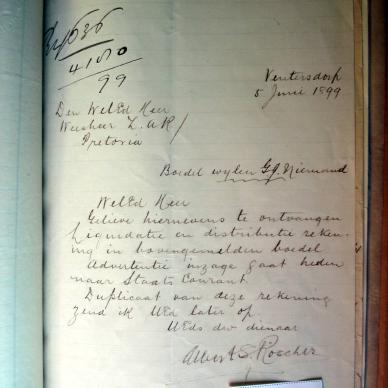 4180
99
Ventersdorp
5 Juni 1899
Den WelEd Heer
Weesheer Z.A.R/
Pretoria
Boedel wylen G.J. Niemand
WelEd Heer
Gelieve hiernevens te ontvangen
Liquidatie en distributie reken-
ing in bovengemelden boedel
Advertentie inzage gaat heden
naar Staats Courant.
Duplicaat van deze rekening
zend ik UEd later op.
UEds dw dienaar
Albert S. Roscher